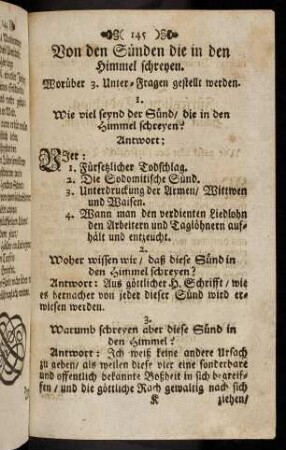 ( 145 )
Von den Sünden die in den
Himmel schreyen.
Worüber 3. Unter-Fragen gestellt werden.
1.
Wie viel seynd der Sünd/ die in den
Himmel schreyen?
Antwort:
VJer:
1. Fürsetzlicher Todschlag.
2. Die Sodomitische Sünd.
3. Unterdruckung der Armen/ Wittwen
und Waisen.
4. Wann man den verdienten Liedlohn
den Arbeitern und Taglöhnern auf-
hält und entzeucht.
2.
Woher wissen wir/ daß diese Sünd in
den Himmel schreyen?
Antwort: Aus göttlicher H. Schrifft/ wie
es hernacher von jeder dieser Sünd wird er-
wiesen werden.
3.
Warumb schreyen aber diese Sünd in
den Himmel?
Antwort: Jch weiß keine andere Ursach
zu geben/ als weilen diese vier eine sonderbare
und offentlich bekannte Boßheit in sich begreif-
fen/ und die göttliche Rach gewaltig nach sich
K ziehen/